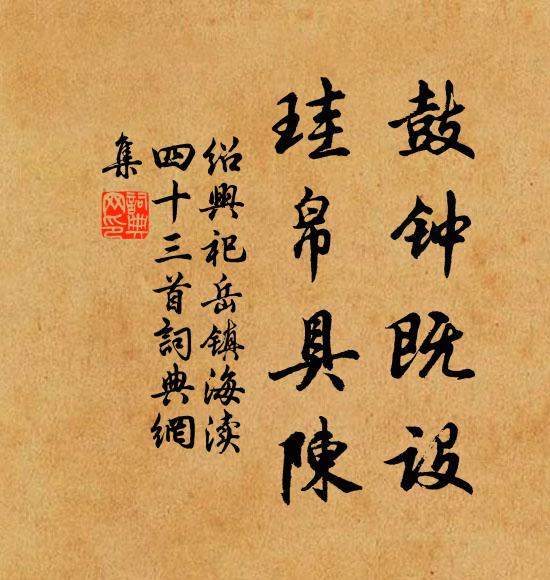 鼓钟既设
珪帛具陳
绍興祀岳镇海渎
四十三首詞典網
集
詞典
网印